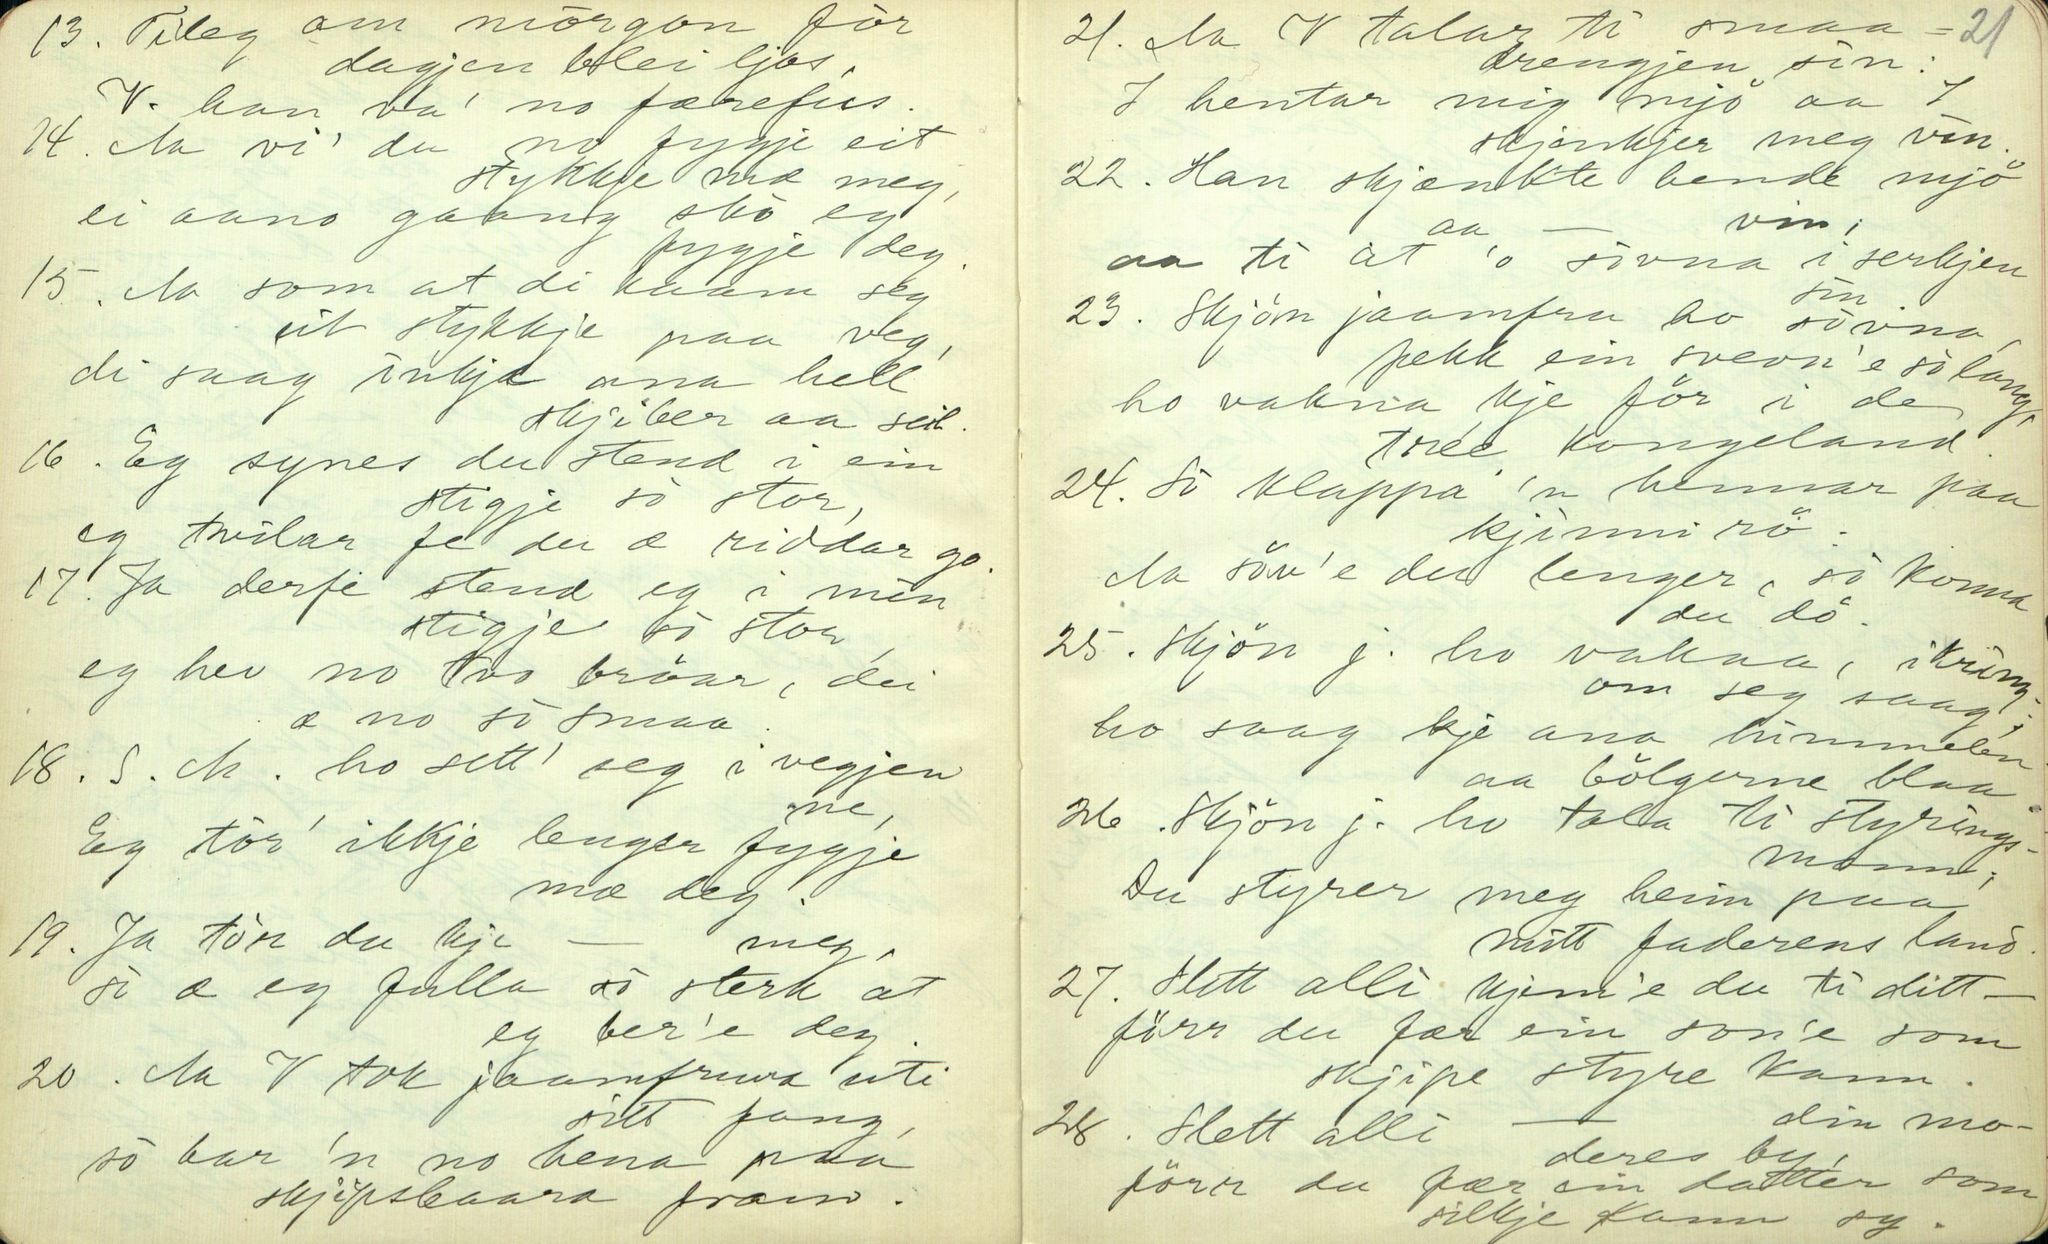 13. Tileg om mörgon för
dagjen blei ljos,
V. han va' no færefus.
14. Aa vi' du no fygje eit
stykkje mæ meg,
ei aano gaang skò eg
fygje deg.
15. Aa som at di kaam seg
eit stykkje paa veg,
di saag inkje ana hell
skjiber aa seil.
16. Eg synes du stend i ein
stigje sò stor,
eg tvilar fe du æ riddar go.
17. Ja derfe stend eg i min
stigje sò stor,
eg hev no tvo bröar, dei
æ no sò smaa.
18. S. M. ho sett' seg i vegjen
ne,
Eg tör' ikkje lenger fygje
mæ deg.
19. Ja tör du kje — meg,
sò æ eg fulla sò sterk at
eg ber'e deg.
20. Aa V tok jaamfruva uti
sitt fang,
sò bar 'n no hena paa
skjipsbaara fram.
21
21. Aa V talar ti smaa-
drengjen sin:
I hentar mig mjö aa I
skjenkjer meg vin.
22. Han skjænkte hende mjö
aa — vin;
aa ti at 'o sòvna i serkjen
sin.
23. Skjön jaamfru ho sòvna,
fekk ein svevn'e sò lang,
ho vakna kje för i de
trée kongeland.
24. Sò klappa 'n hennar paa
kjinni rö:
Aa söv'e du lenger, sò konna
du dö.
25. Skjön j. ho vakna, ikring
om seg saag;
ho saag kje ana himmelen
aa bölgerne blaa.
26. Skjön j. ho tala ti styrings-
mann;
Du styrer meg heim paa
mitt faderens land.
27. Slett alli kjem'e du ti ditt —
förr du fær ein son'e som
skjipe styre kann.
28. Slett alli — din mo-
deres by,
förr du fær ein datter som
silkje kann sy.